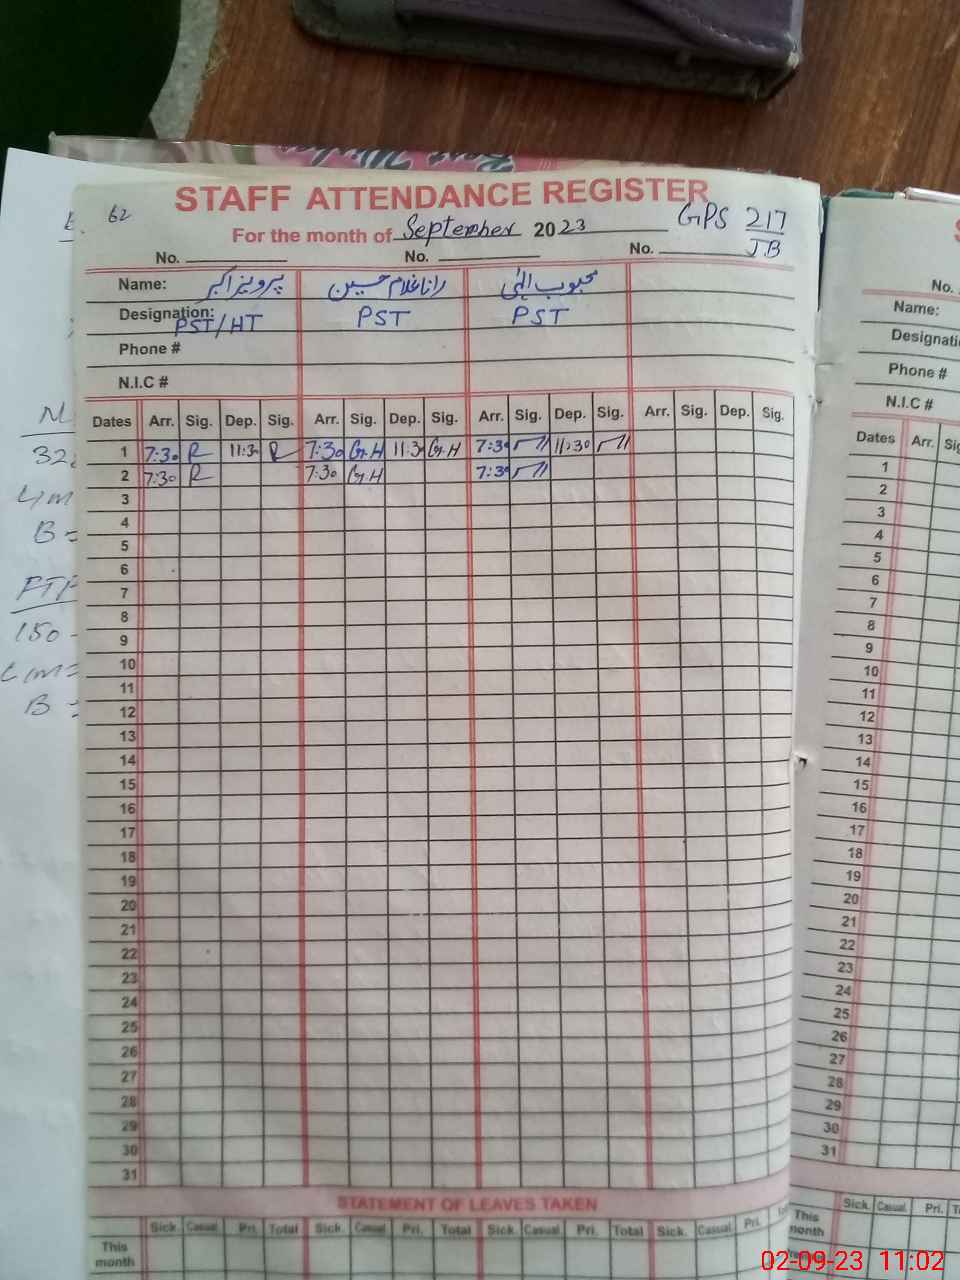 STAFF ATTENDANCE REGISTER
62
For the month of September 2023
GPS 217/JB
No. No. No.
Name: پرویز اکبر رانا غلام حسین محبوب الہٰی
Designation: PST/HT PST PST
Phone #
N.I.C #
Dates Arr. Sig. Dep. Sig. Arr. Sig. Dep. Sig. Arr. Sig. Dep. Sig. Arr. Sig. Dep. Sig.
1 7:30 R 11:30 R 7:30 G.H 11:30 G.H 7:30 11:30
2 7:30 R 7:30 G.H 7:30
3
4
5
6
7
8
9
10
11
12
13
14
15
16
17
18
19
20
21
22
23
24
25
26
27
28
29
30
31
STATEMENT OF LEAVES TAKEN
Sick. Casual. Pri. Total Sick. Casual. Pri. Total Sick. Casual. Pri. Total Sick. Casual. Pri.
This month
No.
Name:
Designati
Phone #
N.I.C #
Dates Arr. Sig
1
2
3
4
5
6
7
8
9
10
11
12
13
14
15
16
17
18
19
20
21
22
23
24
25
26
27
28
29
30
31
Sick. Casual. Pri.
This month
M
32
4m
B =
FTF
150 -
Lm=
B =
Best Wishes
02-09-23 11:02